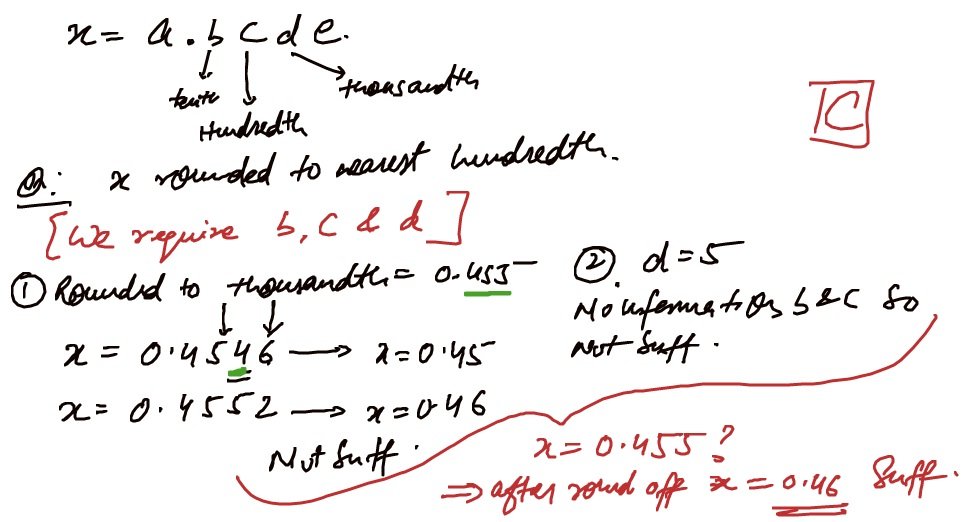 x = a . b c d e .
tenth
thousandth
Hundredth
[C]
Q: x rounded to nearest hundredth.
[We require b, c & d]
① Rounded to thousandth = 0.455
x = 0.4546 → x = 0.45
x = 0.4552 → x = 0.46
Not Suff.
② d = 5
No information b & c So
Not Suff.
x = 0.455 ?
⇒ after round off x = 0.46 Suff.